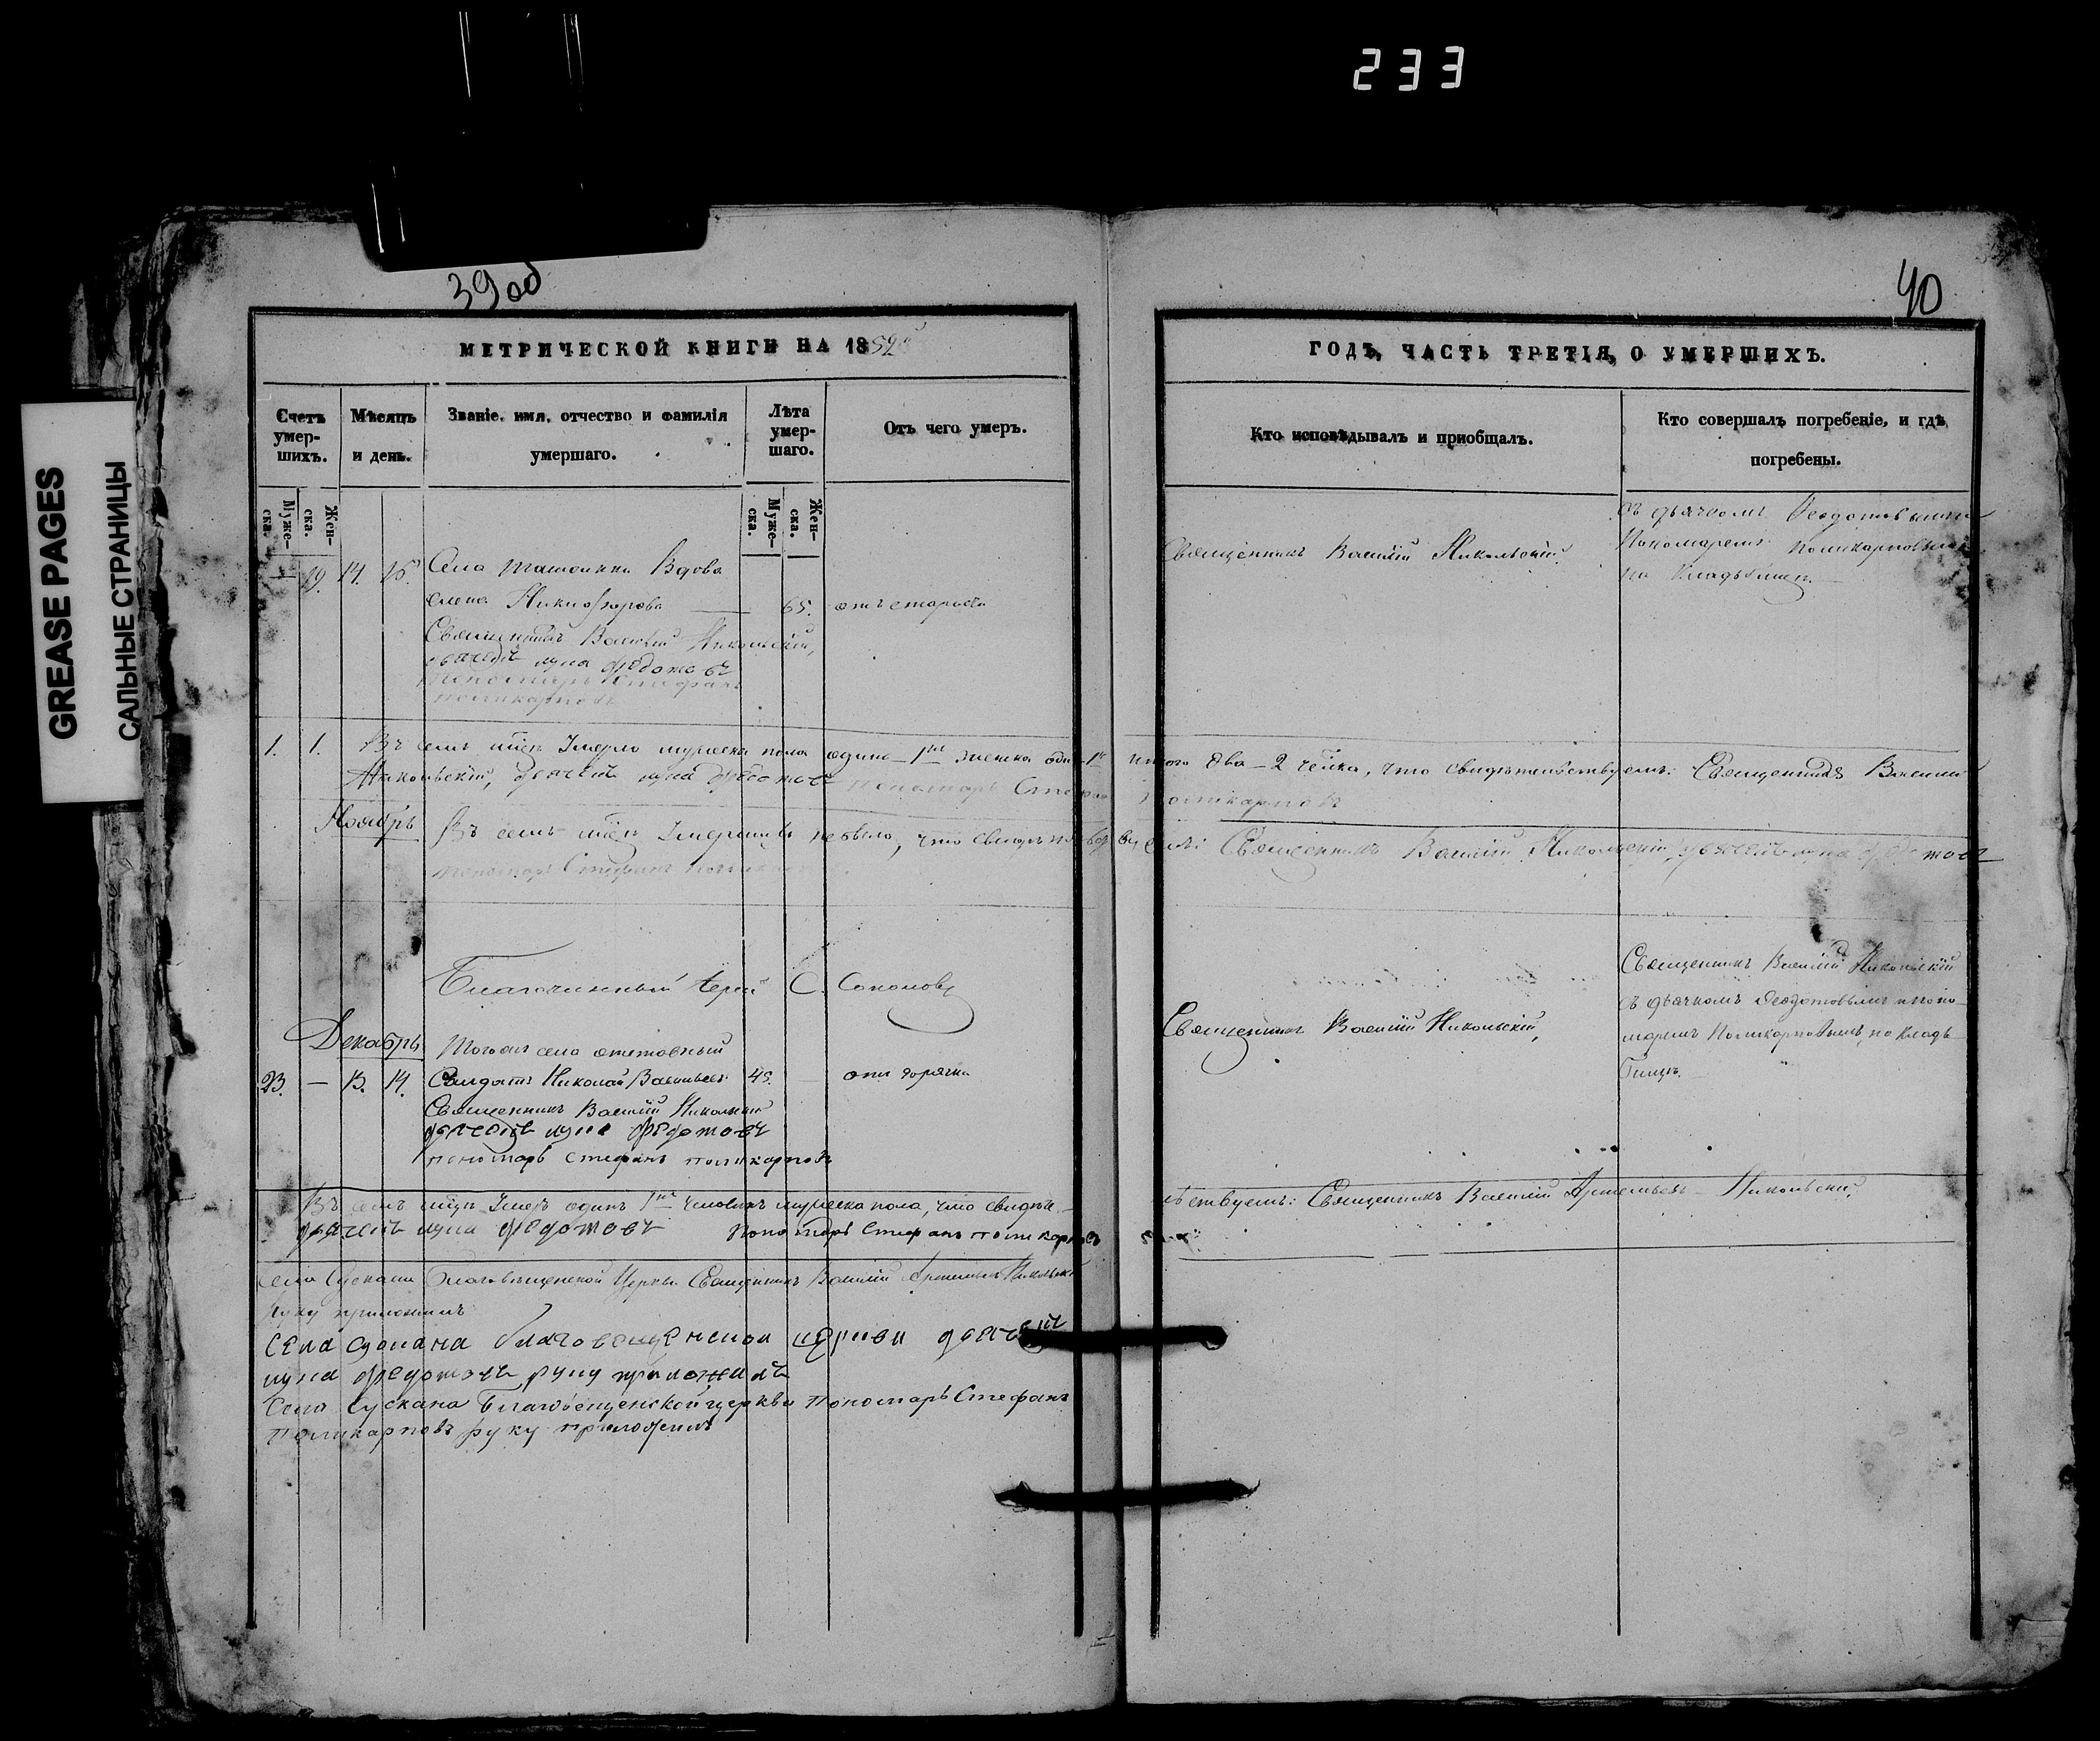 233
GREASE PAGES
САЛЬНЫЕ СТРАНИЦЫ
39 об
40
МЕТРИЧЕСКОЙ КНИГИ НА 1852
ГОДЪ, ЧАСТЬ ТРЕТІЯ, О УМЕРШИХЪ.
Счетъ умер-шихъ.
Мѣсяцъ и день.
Званіе, имя, отчество и фамилія умершаго.
Лѣта умер-шаго.
Отъ чего умеръ.
Кто исповѣдывалъ и пріобщалъ.
Кто совершалъ погребеніе, и гдѣ погребены.
Муже-ска.
Жен-ска.
Муже-ска.
Жен-ска.
съ дьячкомъ Ѳедотовымъ
— 19. 14. 16. Села Вдова
Священникъ Василій Никольскій.
Пономаремъ Поликарповымъ
на кладбищѣ.
Елена Никифорова — 65. отъ старости
Священникъ Василій Никольскій,
дьячекъ лука федотовъ
пономарь Стефанъ
поликарповъ
1. 1. Въ семъ мцѣ умерло мужеска пола одинъ - 1 женска одна 1 итого два - 2 челка, что свидѣтельствуемъ: Священникъ Василій
Никольскій, дьячекъ лука федотовъ пономарь Стефанъ поликарповъ
Ноябрь
Въ семъ мцѣ умершихъ небыло, что свидѣтельствуемъ: Священникъ Василій Никольскій, дьячекъ лука федотовъ
пономарь Стефанъ
Благочинный Іерей С. Соколовъ
Священникъ Василій Никольскій
съ дьячкомъ Ѳедотовымъ и поно-
маремъ Поликарповымъ, на клад-
бищѣ.
Декабрь
Тогожъ села отставный
Священникъ Василій Никольскій,
23. — 13. 14. Солдатъ Николай Васильевъ 45. отъ горячки
Священникъ Василій Никольскій
дьячекъ лука федотовъ
пономарь стефанъ поликарповъ
Въ семъ мцѣ умеръ одинъ 1 человѣкъ мужеска пола, что свидѣте-
льствуемъ: Священникъ Василій Артемьевъ Никольскій,
дьячекъ лука федотовъ Пономарь Стефанъ поликарповъ
Села Сускана Благовѣщенской Церкви Священникъ Василій Артемьевъ Никольскій
руку приложилъ
села сускана благовещенской церкви дьячекъ
лука федотовъ руку приложилъ
Села Сускана Благовѣщенской церкви Пономарь Стефанъ
Поликарповъ руку приложилъ